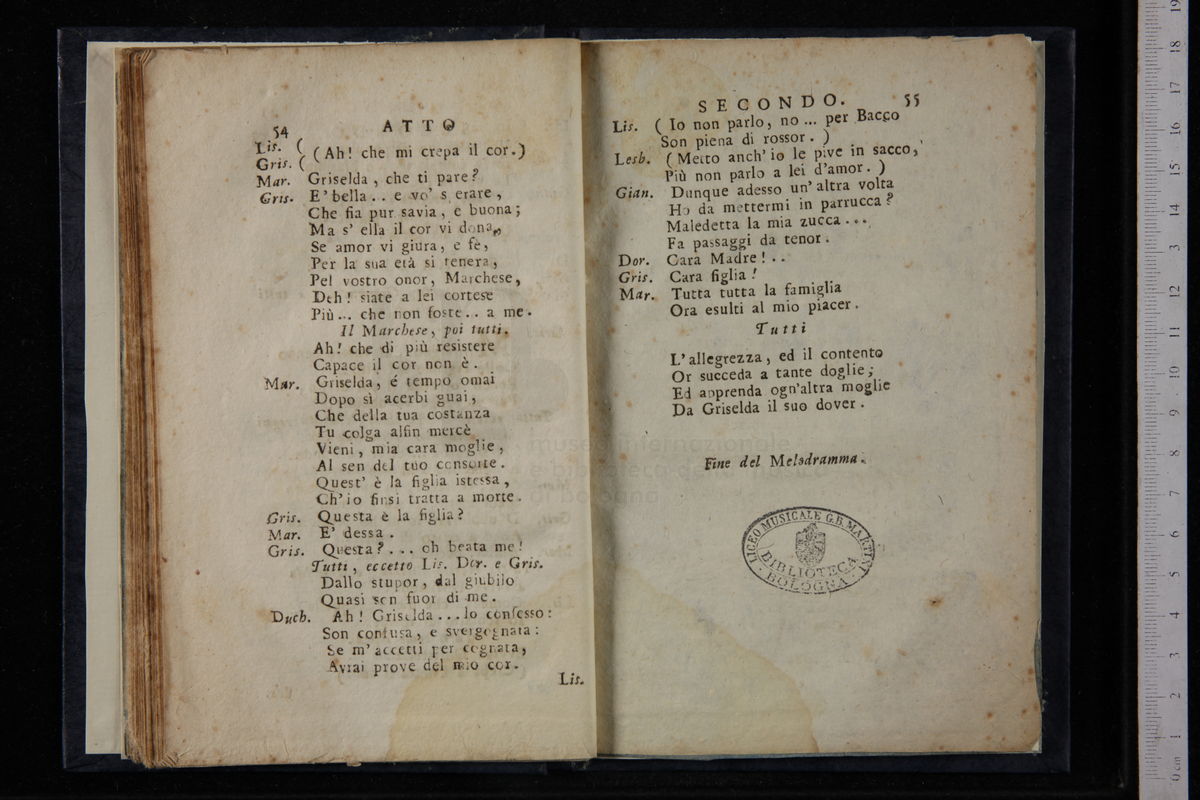 54 ATTO
Lis. (
Gris. ( (Ah! che mi crepa il cor.)
Mar. Griselda, che ti pare?
Gris. E' bella.. e vo' s erare,
Che sia pur savia, e buona;
Ma s' ella il cor vi dona,
Se amor vi giura, e fè,
Per la sua età si tenera,
Pel vostro onor, Marchese,
Deh! siate a lei cortese
Più... che non foste.. a me.
Il Marchese, poi tutti.
Ah! che di più resistere
Capace il cor non è.
Mar. Griselda, é tempo omai
Dopo sì acerbi guai,
Che della tua costanza
Tu colga alfin mercè
Vieni, mia cara moglie,
Al sen del tuo consorte.
Quest' è la figlia istessa,
Ch'io finsi tratta a morte.
Gris. Questa è la figlia?
Mar. E' dessa.
Gris. Questa?... oh beata me!
Tutti, eccetto Lis. Dor. e Gris.
Dallo stupor, dal giubilo
Quasi son fuor di me.
Duch. Ah! Griselda...lo confesso:
Son confusa, e svergognata:
Se m' accetti per cognata,
Avrai prove del mio cor.
Lis.
SECONDO. 55
Lis. (Io non parlo, no... per Bacco
Son piena di rossor.)
Lesb. (Metto anch' io le pive in sacco,
Più non parlo a lei d'amor.)
Gian. Dunque adesso un' altra volta
Ho da mettermi in parrucca?
Maledetta la mia zucca...
Fa passaggi da tenor.
Dor. Cara Madre!..
Gris. Cara figlia!
Mar. Tutta tutta la famiglia
Ora esulti al mio piacer.
Tutti
L'allegrezza, ed il contento
Or succeda a tante doglie;
Ed apprenda ogn'altra moglie
Da Griselda il suo dover.
museo internazionale
e biblioteca della
di bologna
Fine del Melodramma.
LICEO MUSICALE G.B. MARTINI
BIBLIOTECA
BOLOGNA